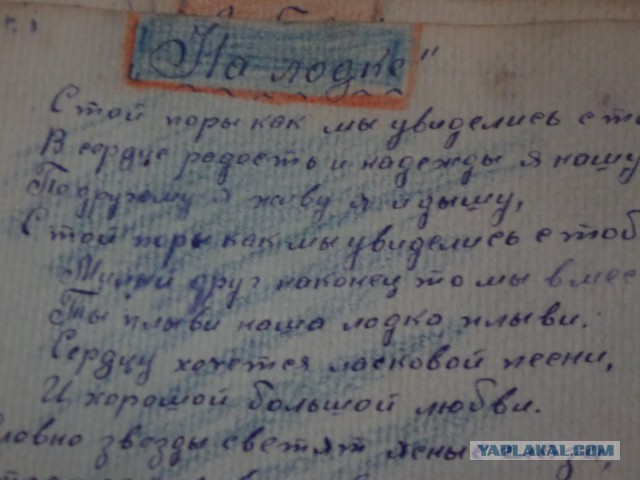 "На лодке"
Стой поры как мы увиделись с то
В сердце радость и надежды я нашу
По другому живу я и дышу,
Стой поры как мы увиделись с тоб
Милый друг наконец то мы вмес
Ты плыви наша лодка плыви.
Сердцу хочется ласковой песни,
И хорошой большой любви.
ловно звезды светят
YAPLAKAL.COM